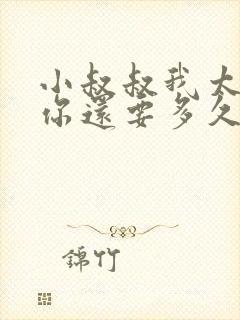 小叔叔我太
你還要多久
錦竹